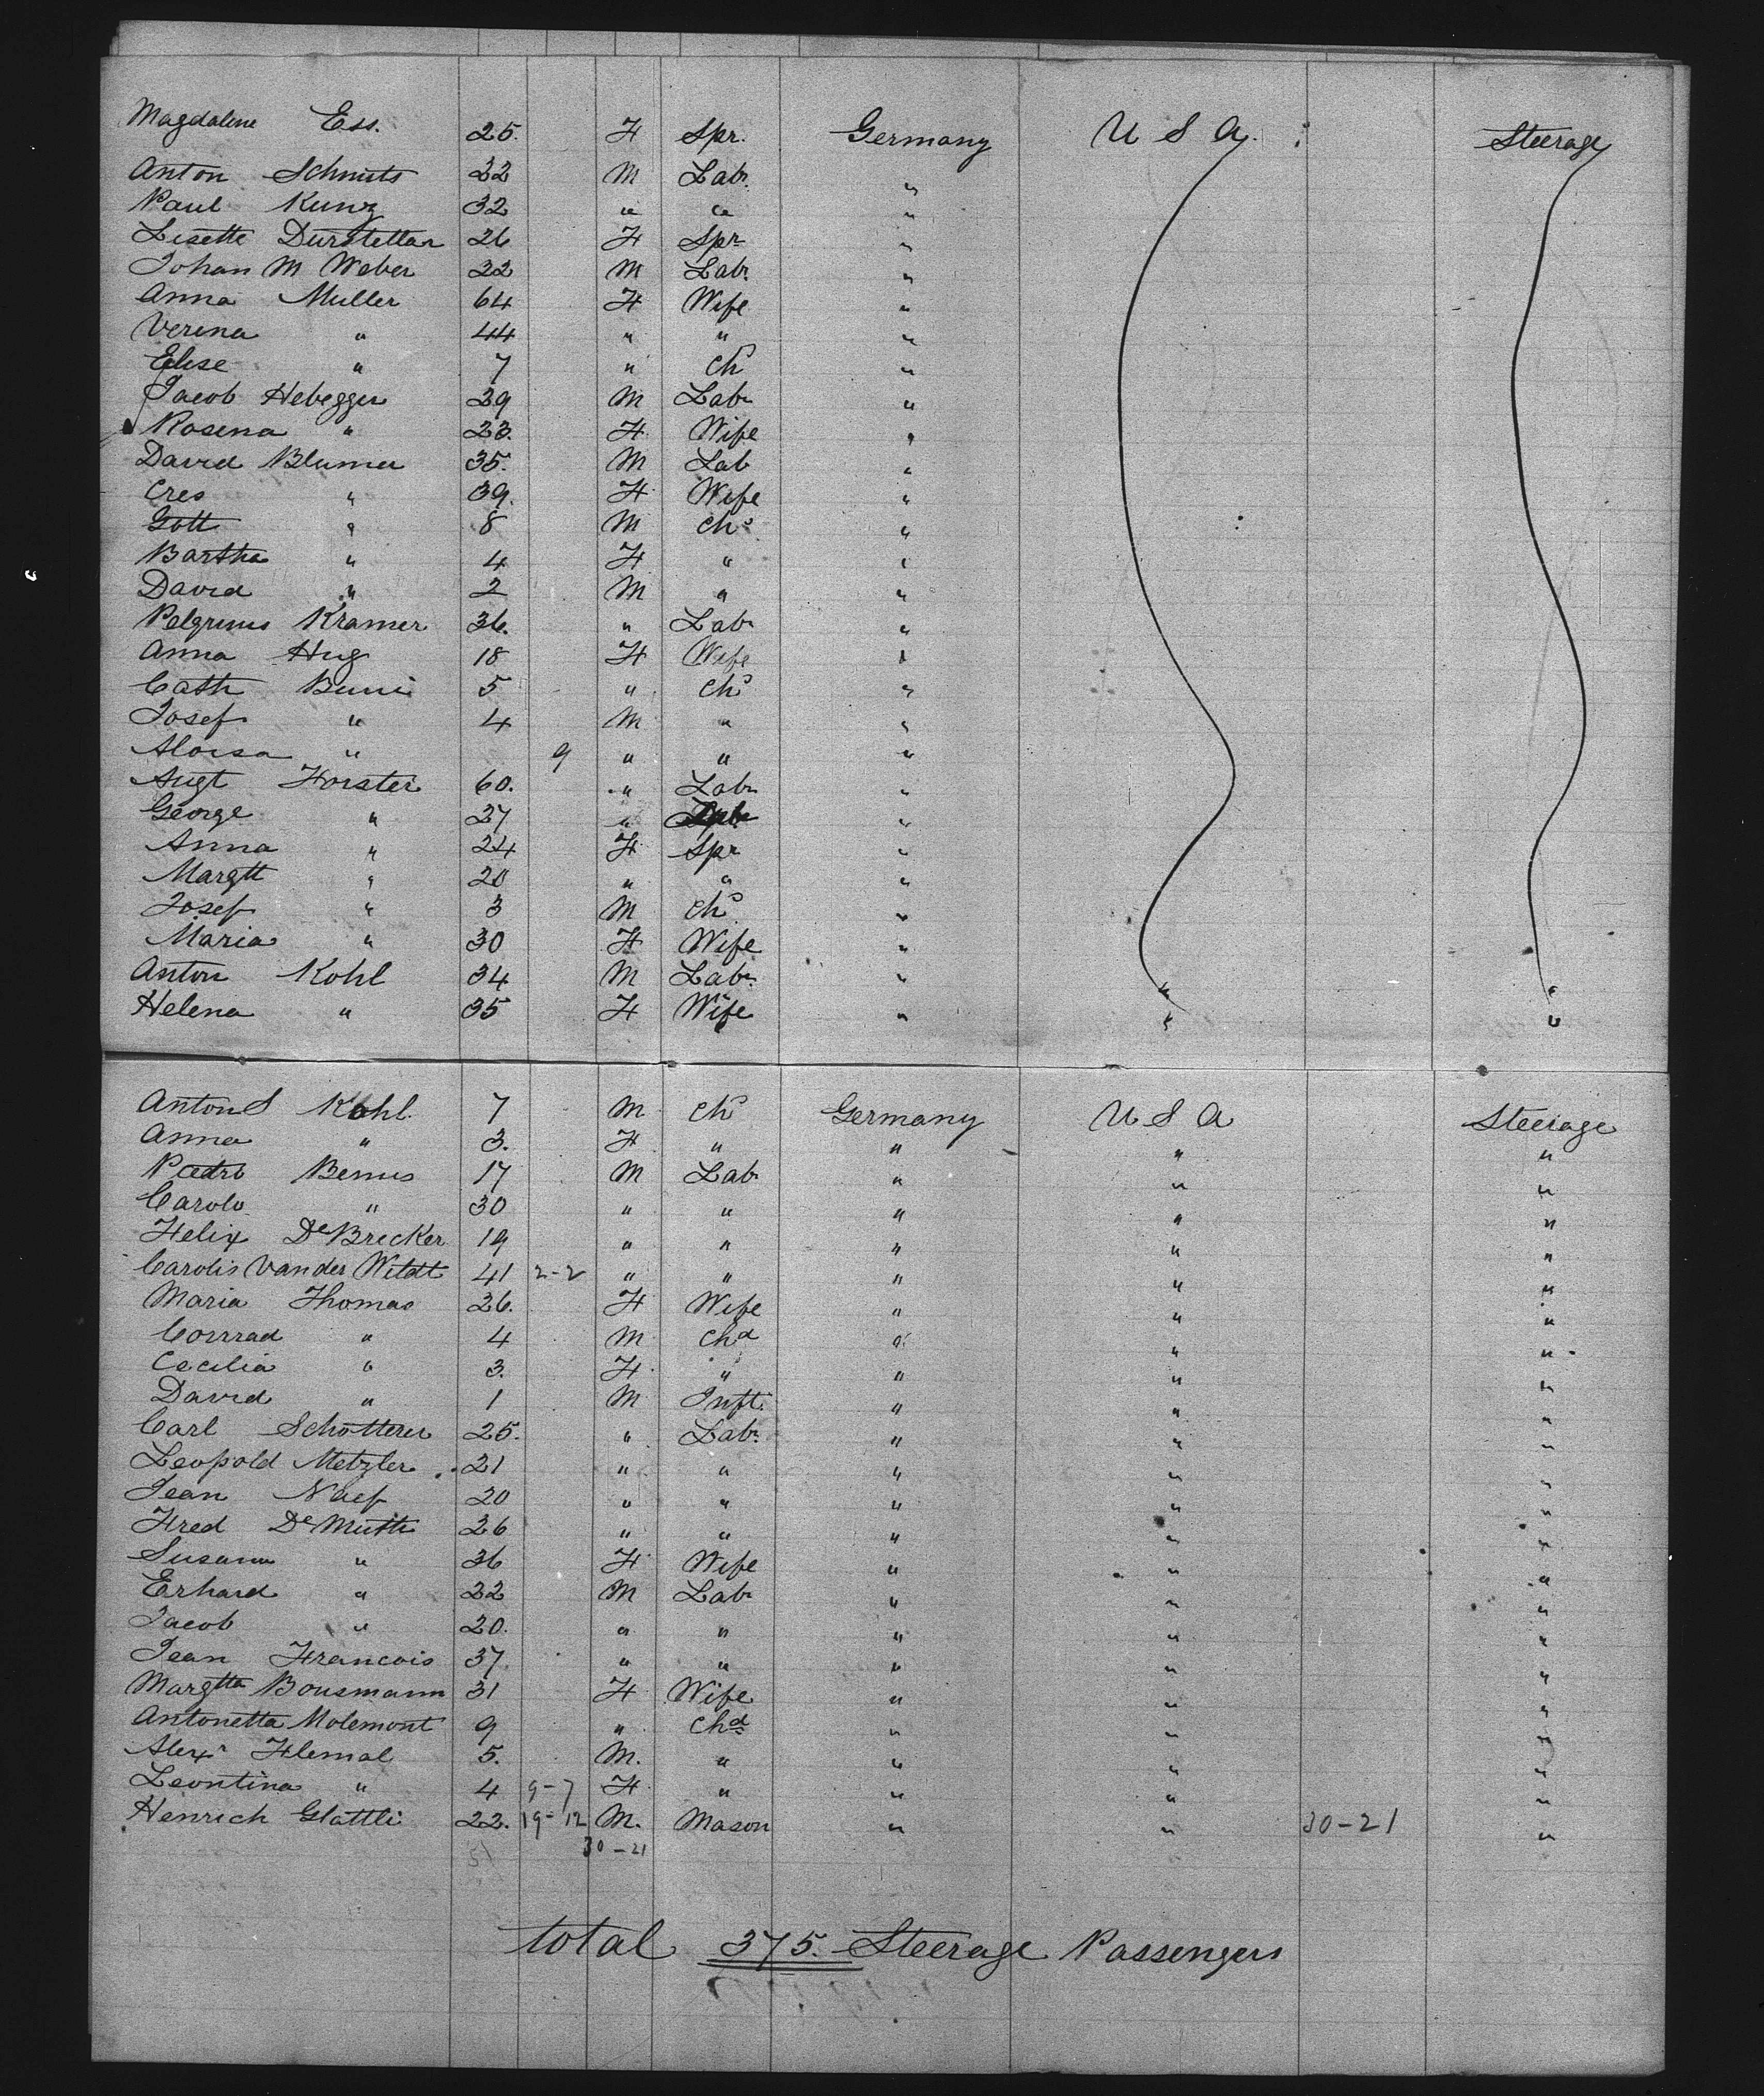 Magdalene Ess. 25. F Spr. Germany U S A. Steerage
Anton Schmits 22 M Labr. "
Paul Kunz 32 " " "
Lisette Durstettar 26 F Spr "
Johan M Weber 22 M Labr. "
Anna Muller 64 F Wife "
Verena " 44 " " "
Elise " 7 " Chd "
Jacob Hebegger 29 M Labr "
Rosena " 23. F Wife "
David Blumer 35. M Lab "
Cres " 39. F Wife "
Gott " 8 M Chd "
Bartha " 4 F " "
David " 2 M " "
Pelgrims Kramer 36. " Labr "
Anna Hug 18 F Wife "
Cath 5 " Chd "
Josef " 4 M " "
Aloisa " 9 " " "
Augt Forster 60. " Labr "
George " 27 " "
Anna " 24 F Spr "
Margtt " 20 " " "
Josef " 3 M Chd "
Maria " 30 F Wife "
Anton Kohl 34 M Labr. " " "
Helena " 35 F Wife " " "
Anton S Kohl. 7 M Chd Germany U S A Steerage
Anna " 3. F " " " "
Pedro Benus 17 M Labr " " "
Carolo " 30 " " " " "
Felix De Brecker 19 " " " " "
Carolis Van der Wildt 41 2-2 " " " " "
Maria Thomas 26. F Wife " " "
Conrad " 4 M Chd " " "
Cecilia " 3. F " " " "
David " 1 M Inft. " " "
Carl Schotterer 25. " Labr. " " "
Leopold Metzler 21 " " " " "
Jean Naef 20 " " " " "
Fred De Muth 26 " " " " "
Susanna " 36 F Wife " " "
Erhard " 22 M Labr " " "
Jacob " 20. " " " " "
Jean Francois 37 " " " " "
Margtta Bousmann 31 F Wife " " "
Antonetta Molemont 9 " Chd " " "
Alexr Flemal 5. M. " " " "
Leontina " 4 9-7 F " " " "
Henrich Glattli 22. 19-12 M. Mason " " 30-21 "
51 30-21
total 375. Steerage Passengers